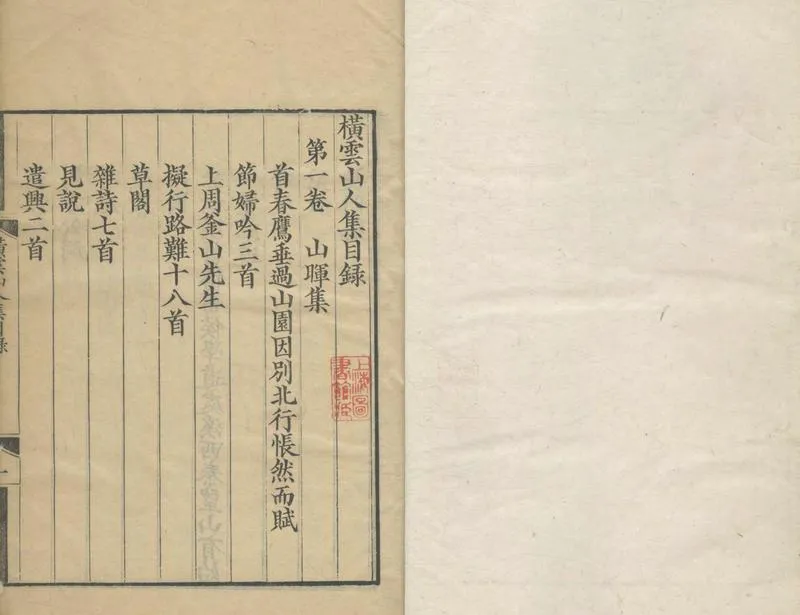 橫雲山人集目錄
第一卷 山暉集
首春鷹垂過山園因別北行悵然而賦
節婦吟三首
上周釜山先生
擬行路難十八首
草閣
雜詩七首
見說
遣興二首
橫雲山人集目錄
一
上海圖書館藏